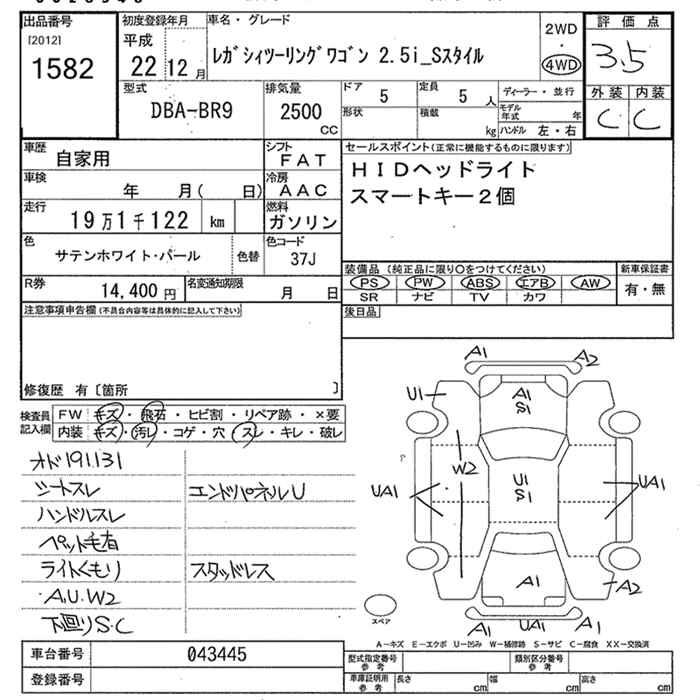 出品番号
[2012]
1582
初度登録年月
平成
22 12 月
車名・グレード
レガシィツーリングワゴン 2.5i_Sスタイル
2WD
・
4WD
評価点
3.5
外装 内装
C C
型式
DBA-BR9
排気量
2500
CC
ドア
5
定員
5 人
形状
積載
kg
ディーラー・並行
モデル年式 年
ハンドル 左・右
車歴
自家用
シフト
FAT
車検
年 月( 日)
冷房
AAC
走行
19万1千122 km
燃料
ガソリン
色
サテンホワイト・パール
色替
色コード
37J
R券
14,400 円
名変通知期限
月 日
セールスポイント(正常に機能するものに限ります)
HIDヘッドライト
スマートキー2個
装備品 (純正品に限り○をつけてください)
PS PW ABS エアB AW
SR ナビ TV カワ
新車保証書
有・無
後日品
注意事項申告欄(不具合内容等は具体的に記入して下さい)
修復歴 有〔箇所 〕
検査員
記入欄
FW キズ・飛石・ヒビ割・リペア跡・×要
内装 キズ・汚レ・コゲ・穴・スレ・キレ・破レ
オド191,131
シートスレ
エンドパネルU
ハンドルスレ
ペット毛有
ライトくもり
スタッドレス
A.U.W2
下廻りS・C
A1
A2
U1
A1
S1
W2
UA1
U1
S1
UA1
A1
A2
A1
UA1
A1
スペア
A-キズ E-エクボ U-凹み W-補修跡 S-サビ C-腐食 XX-交換済
車台番号
043445
登録番号
型式指定番号
参考
類別区分番号
参考
車庫証明用
参考
長さ cm
幅 cm
高さ cm